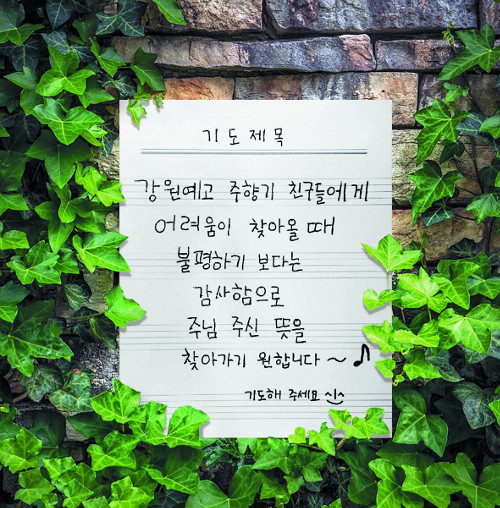 기도제목
강원예고 주향기 친구들에게
어려움이 찾아올 때
불평하기 보다는
감사함으로
주님 주신 뜻을
찾아가기 원합니다 ~ ♪
기도해 주세요 ^‿^